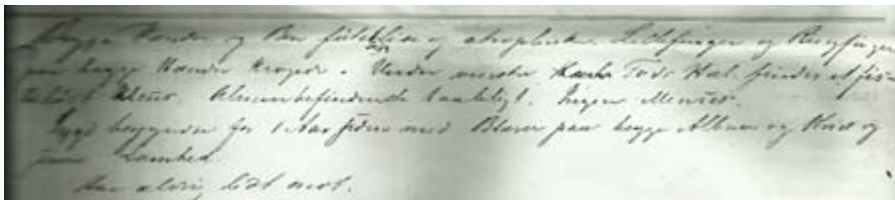 Begge Hænder og Ben følelsløse og atrophiske. Lillefinger og Ringfinger
paa begge Hænder krogede. Under venstre Fods Hæl findes et fis-
tuløst Ulcus. Almenbefindende taaleligt. Ingen Menses.
Sygd begyndte for 1 Aar siden med Blærer paa begge Albuer og Knæ og
Lamhed.
Har aldrig lidt ondt.